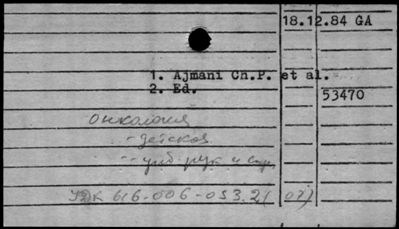 18.12.84 GA
1. Ajmani Ch.P. et al.
2. Ed.
53470
онкология
- детская
-- учеб. рук. и
УДК 616-006-053.2(07)